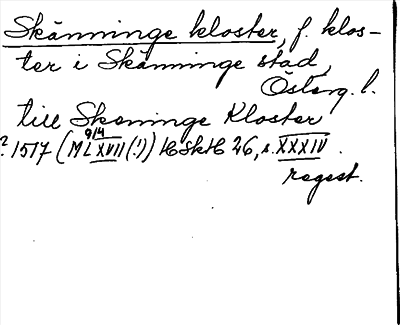 Skänninge kloster, f. klos-
ter i Skänninge stad,
Österg. l.
till Skeninge Kloster
? 1517 9/4 (MLXVII(!)) HSkH 26, s. XXXIV.
regest.